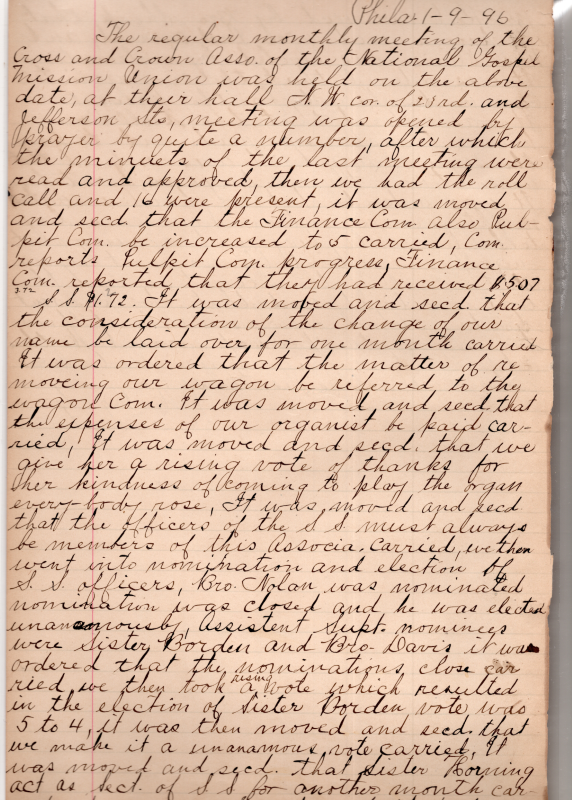 Phila. 1-9-96
The regular monthly meeting of the
Cross and Crown Asso. of the National Gospel
Mission Union was held on the above
date, at their hall N.W. cor. of 23rd. and
Jefferson Sts, meeting was opened by
prayer by quite a number, after which
the minuets of the last meeting were
read and approved, then we had the roll
call and 16 were present, it was moved
and secd that the Finance Com. also Pul-
pit Com. be increased to 5 carried, Com.
reports Pulpit Com. progress, Finance
Com. reported that they had received $5.07
3.72 S.S. $1.72. It was moved and secd. that
the consideration of the change of our
name be laid over for one month carried
It was ordered that the matter of re
moveing our wagon be referred to the
wagon Com. It was moved and secd, that
the expenses of our organist be paid car-
ried, It was moved and secd. that we
give her a rising vote of thanks for
her kindness of coming to play the organ
every-body rose, It was, moved and secd
that the officers of the S S must always
be members of this Associa. carried, we then
went into nomination and election of
S. S. officers, Bro. Nolan was nominated
nomination was closed and he was elected
unanamously, Assistent Supt. nominees
were Sister Borden and Bro. Davis it was
ordered that the nominations close car
ried, we then took rising vote which resulted
in the election of Sister Borden vote was
5 to 4, it was then moved and secd. that
we make it a unanamous, vote carried, It
was moved and secd. that Sister Horning
act as Sect. of S S for another month car-